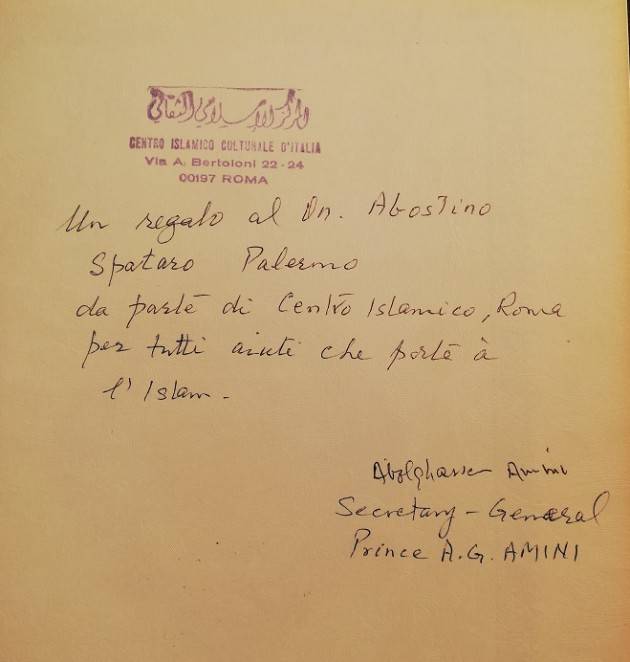 المركز الإسلامي الثقافي
CENTRO ISLAMICO CULTURALE D'ITALIA
Via A. Bertoloni 22-24
00197 ROMA
Un regalo al On. Agostino
Spataro Palermo
da parte di Centro Islamico, Roma
per tutti aiuti che porte à
l'Islam.
Abolghassem Amini
Secretary - General
Prince A.G. AMINI